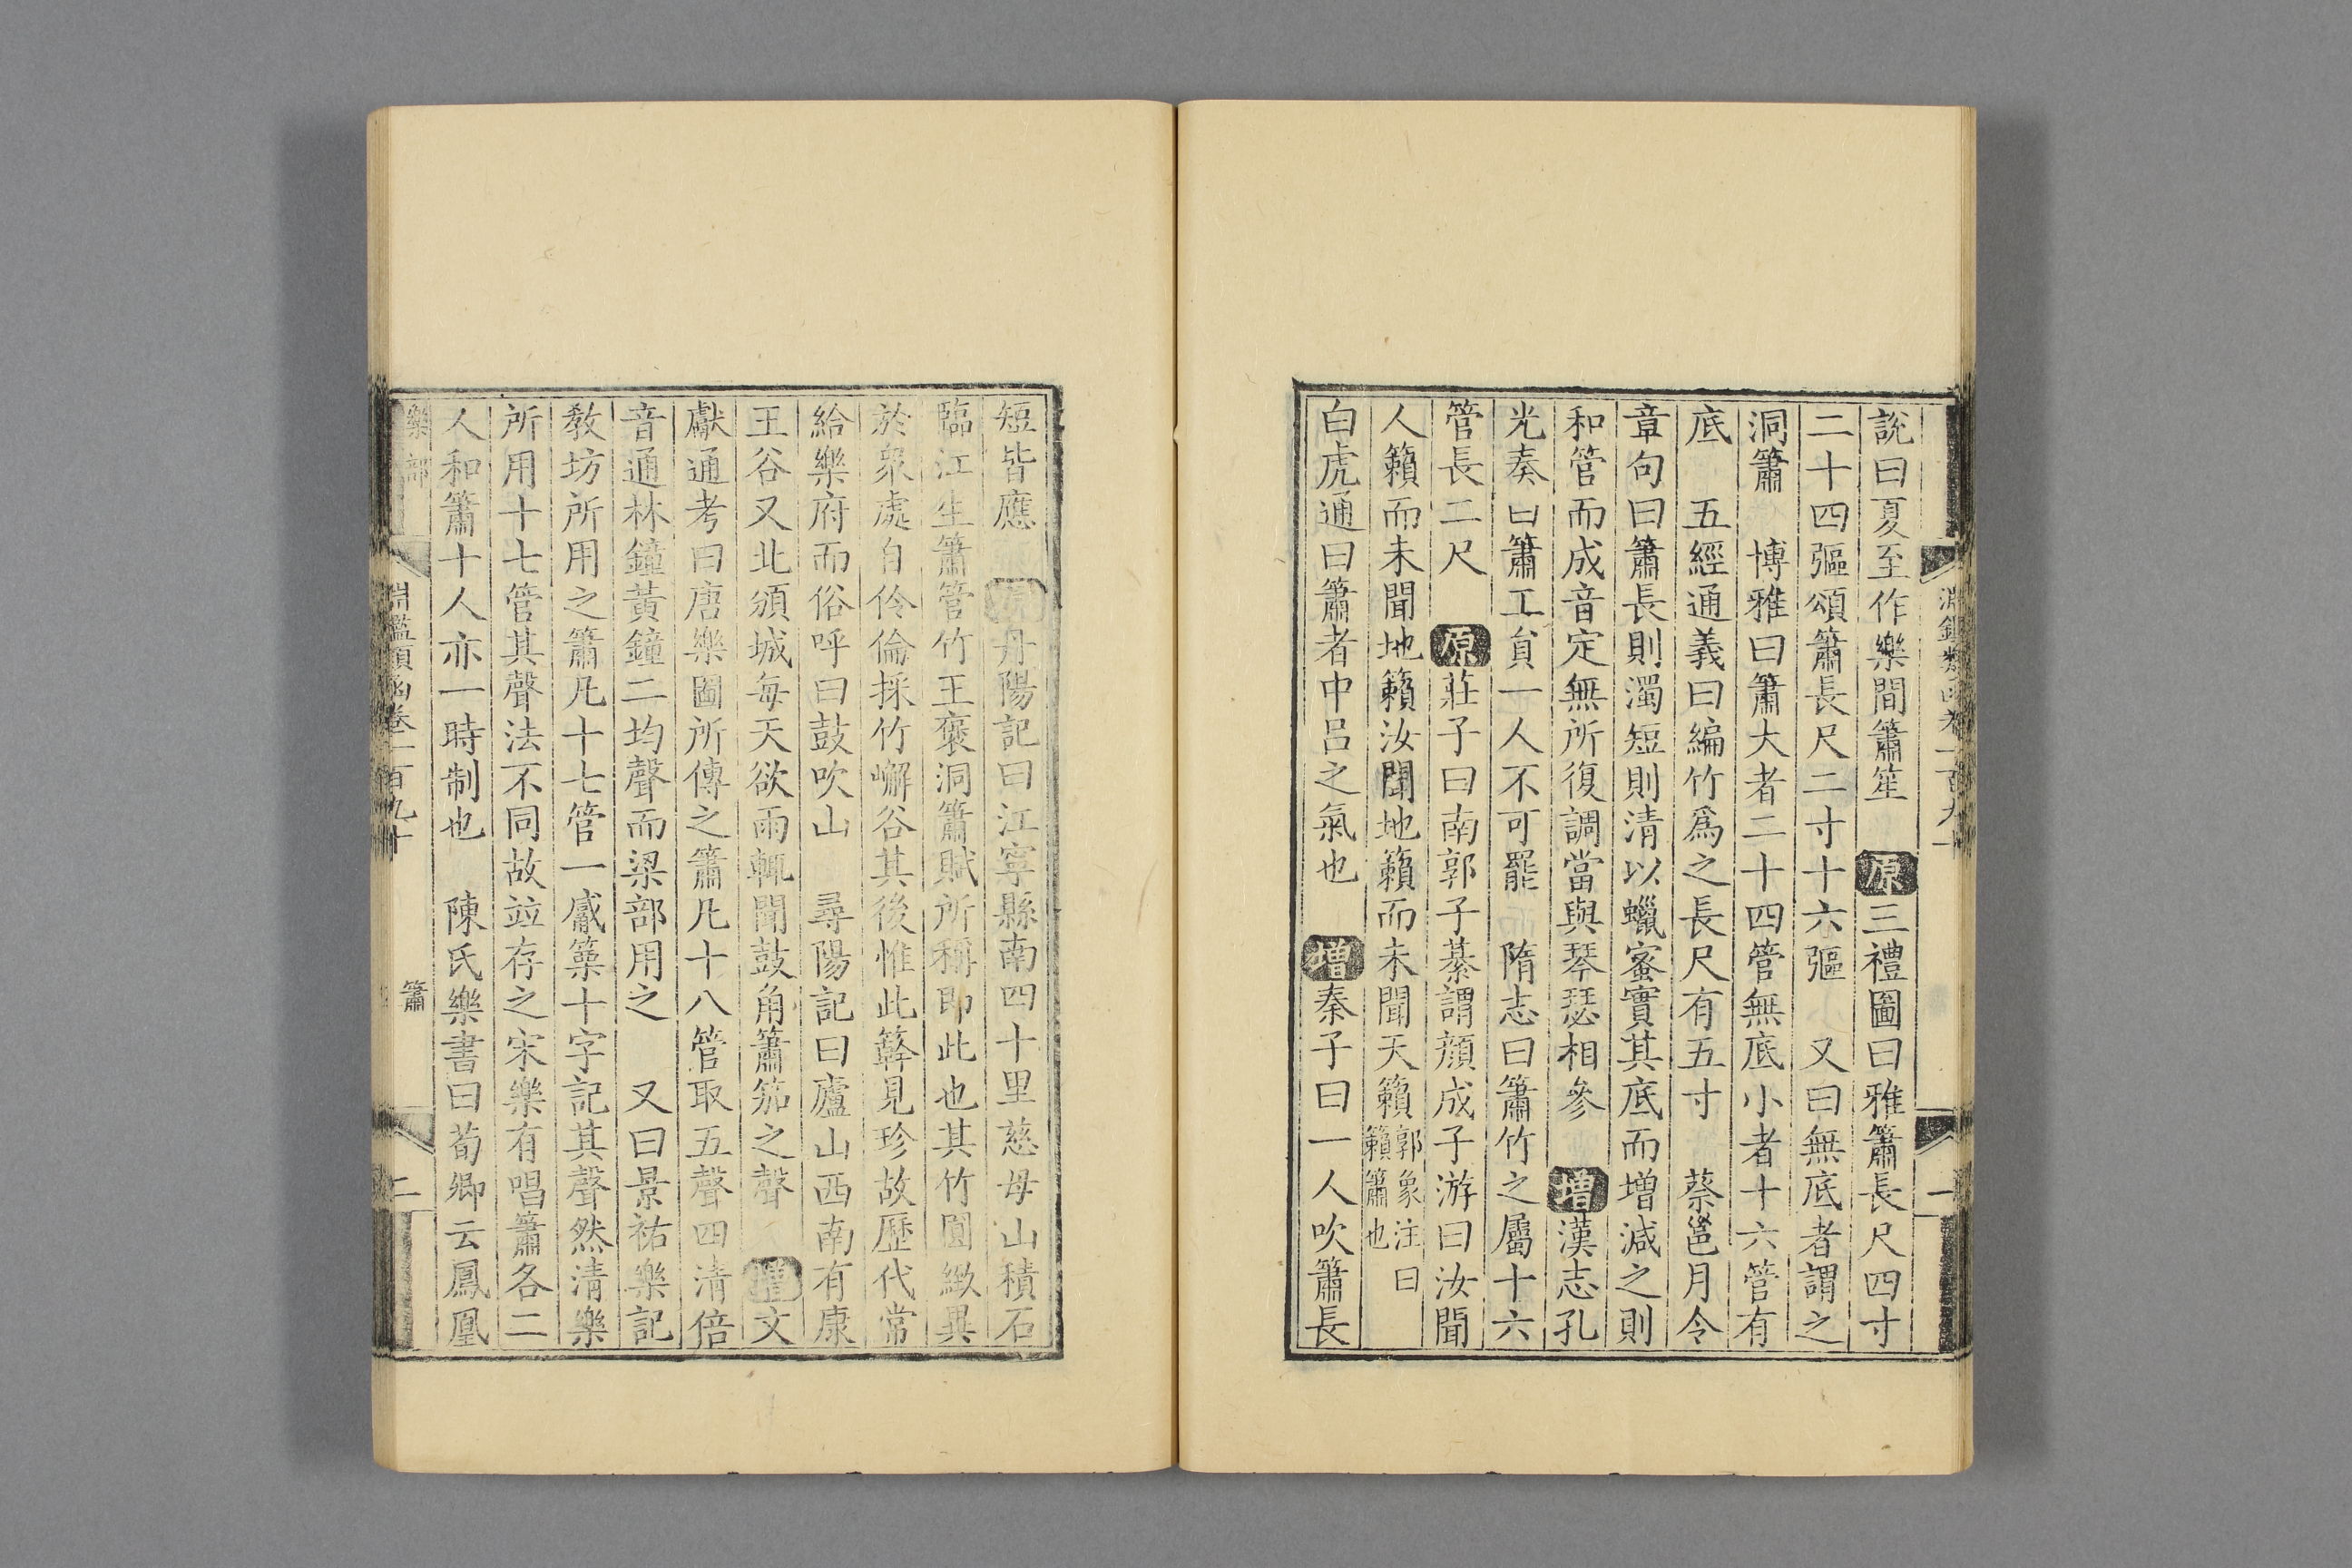 說曰夏至作樂間簫笙　原三禮圖曰雅簫長尺四寸
二十四彄頌簫長尺二寸十六彄　又曰無底者謂之
洞簫　博雅曰簫大者二十四管無底小者十六管有
底　五經通義曰編竹爲之長尺有五寸　蔡邕月令
章句曰簫長則濁短則清以蠟蜜實其底而增減之則
和管而成音定無所復調當與琴瑟相參　增漢志孔
光奏曰簫工員一人不可罷　隋志曰簫竹之屬十六
管長二尺　原莊子曰南郭子綦謂顏成子游曰汝聞
人籟而未聞地籟汝聞地籟而未聞天籟郭象注曰籟簫也
白虎通曰簫者中呂之氣也　增秦子曰一人吹簫長
短皆應　原丹陽記曰江寧縣南四十里慈母山積石
臨江生簫管竹王褒洞簫賦所稱即此也其竹圓緻異
於衆處自伶倫採竹嶰谷其後惟此簳見珍故歷代常
給樂府而俗呼曰鼓吹山　尋陽記曰廬山西南有康
王谷又北頒城每天欲雨輒聞鼓角簫笳之聲　增文
獻通考曰唐樂圖所傳之簫凡十八管取五聲四清倍
音通林鐘黃鐘二均聲而梁部用之　又曰景祐樂記
敎坊所用之簫凡十七管一觱篥十字記其聲然清樂
所用十七管其聲法不同故竝存之宋樂有唱簫各二
人和簫十人亦一時制也　陳氏樂書曰荀卿云鳳凰
樂部　淵鑑類函卷一百九十　簫　二